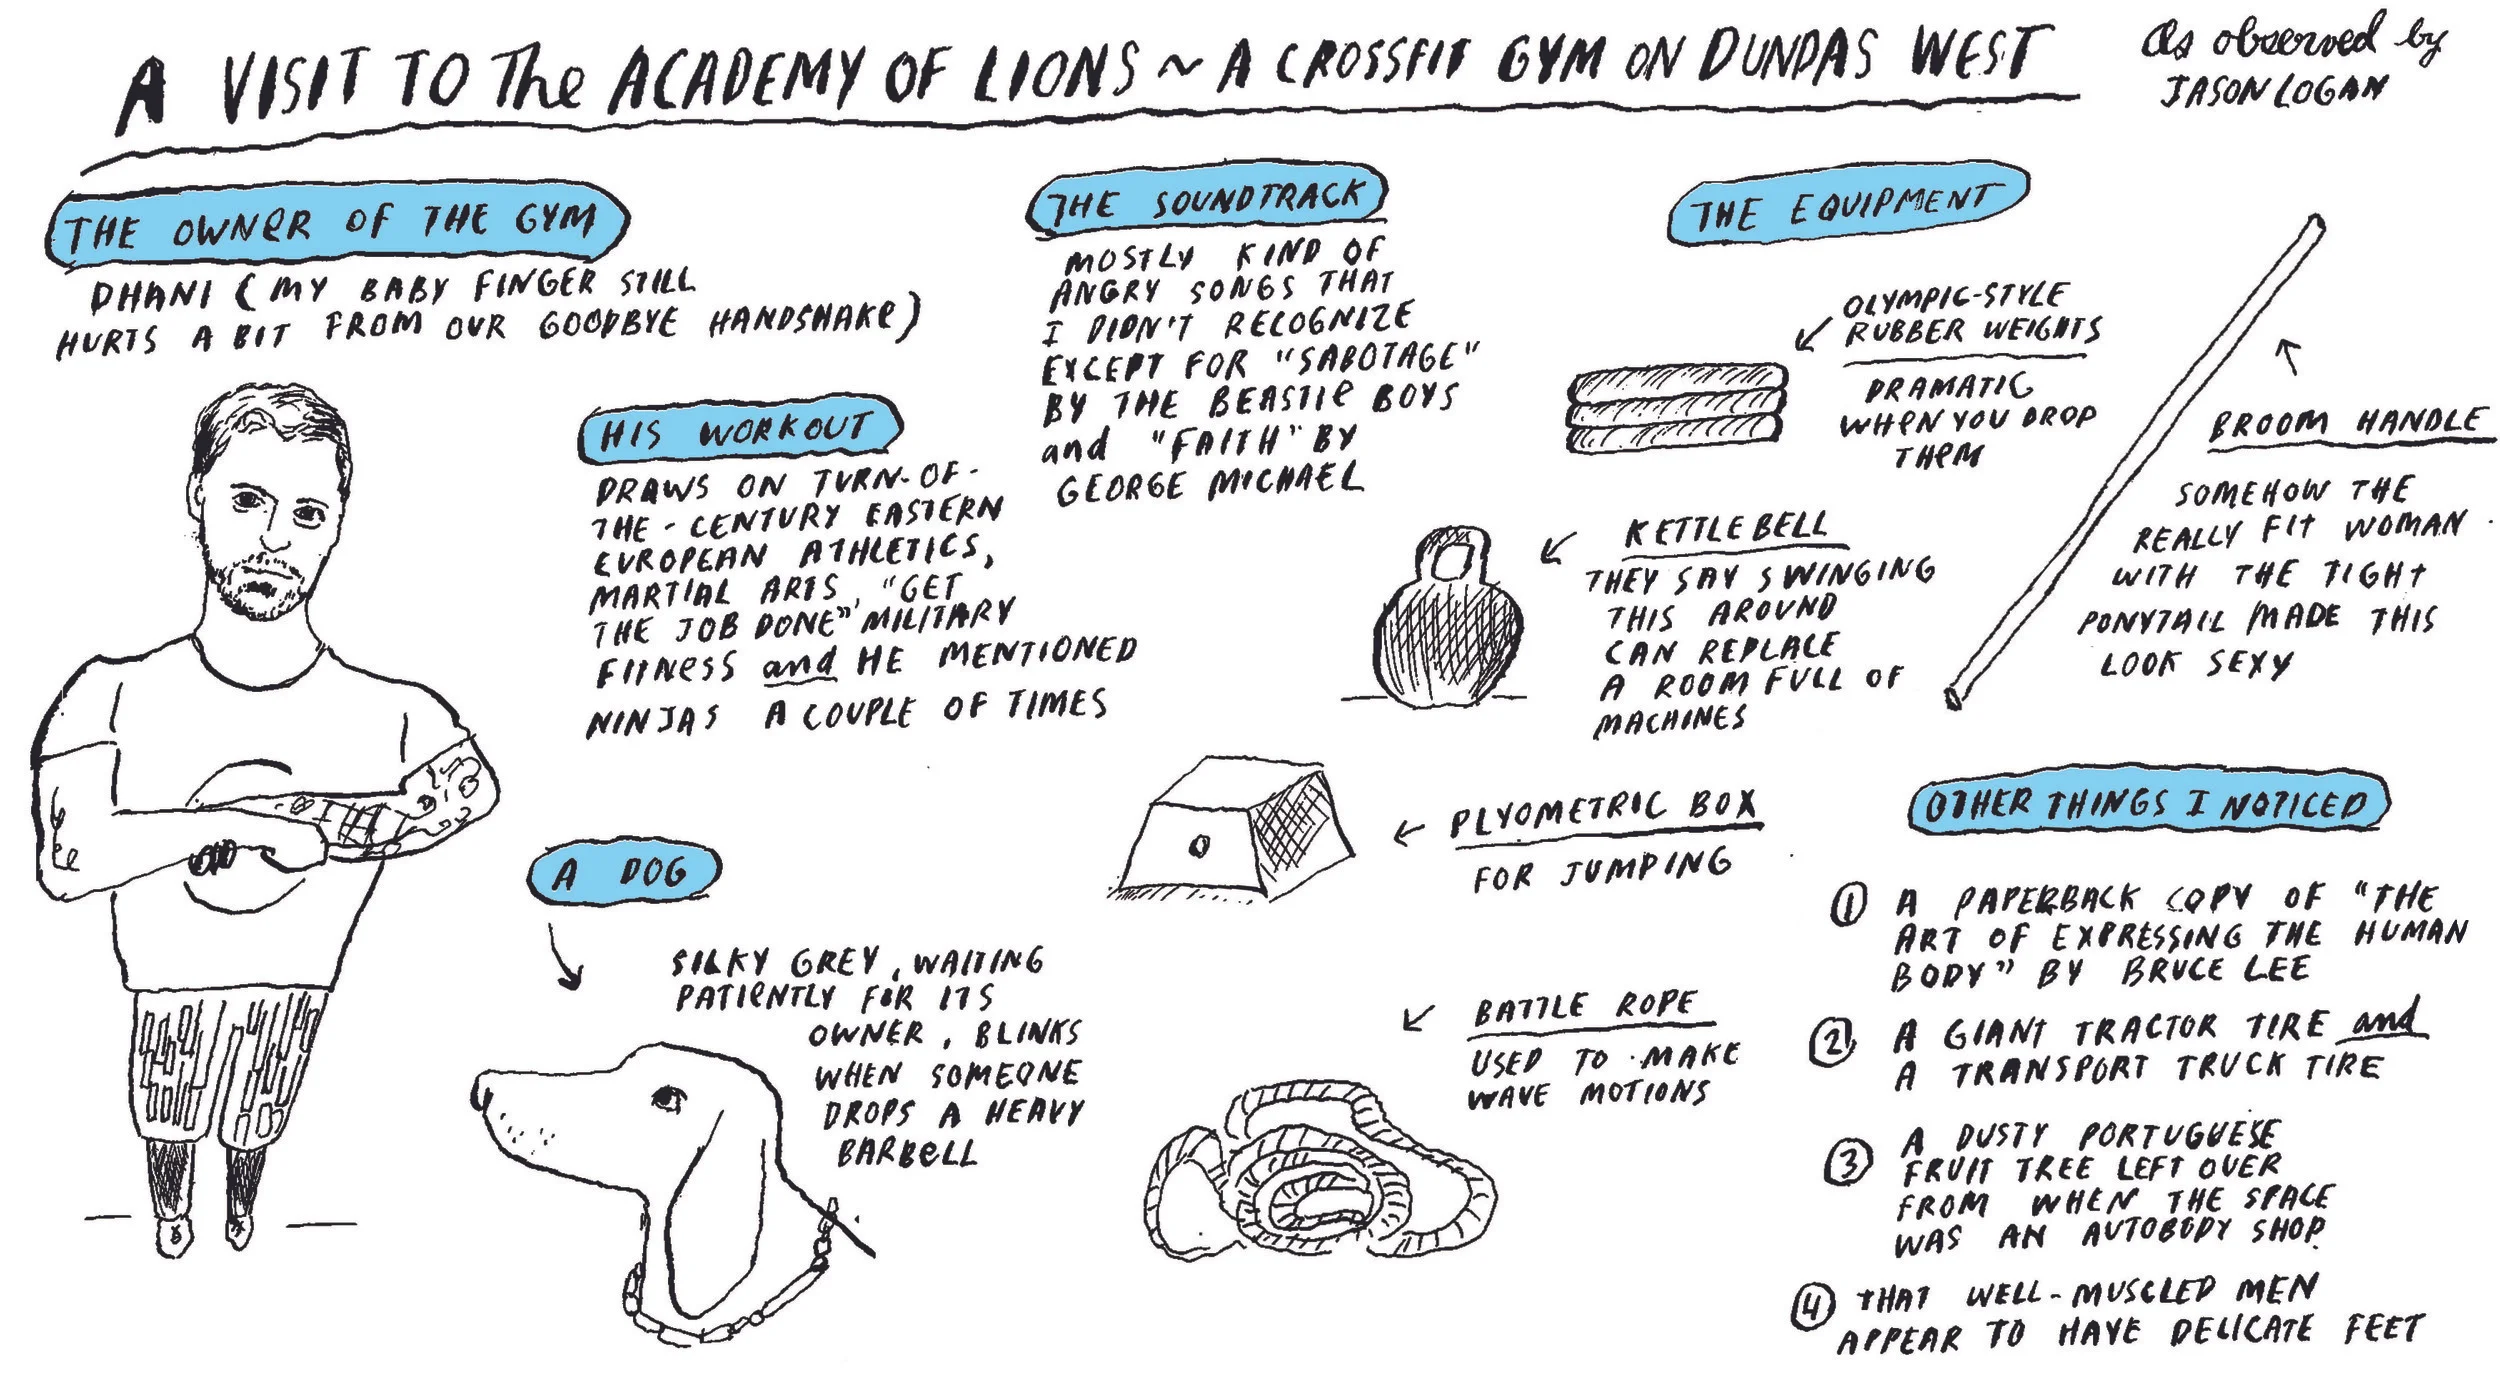 A VISIT TO The ACADEMY OF LIONS ~ A CROSSFIT GYM ON DUNDAS WEST
As observed by
JASON LOGAN
THE OWNER OF THE GYM
DHANI (MY BABY FINGER STILL
HURTS A BIT FROM OUR GOODBYE HANDSHAKE)
HIS WORKOUT
DRAWS ON TURN-OF-
THE-CENTURY EASTERN
EUROPEAN ATHLETICS,
MARTIAL ARTS, "GET
THE JOB DONE" MILITARY
FITNESS and HE MENTIONED
NINJAS A COUPLE OF TIMES
A DOG
SILKY GREY, WAITING
PATIENTLY FOR ITS
OWNER, BLINKS
WHEN SOMEONE
DROPS A HEAVY
BARBELL
THE SOUNDTRACK
MOSTLY KIND OF
ANGRY SONGS THAT
I DIDN'T RECOGNIZE
EXCEPT FOR "SABOTAGE"
BY THE BEASTIE BOYS
and "FAITH" BY
GEORGE MICHAEL
THE EQUIPMENT
OLYMPIC-STYLE
RUBBER WEIGHTS
DRAMATIC
WHEN YOU DROP
THEM
BROOM HANDLE
SOMEHOW THE
REALLY FIT WOMAN
WITH THE TIGHT
PONYTAIL MADE THIS
LOOK SEXY
KETTLEBELL
THEY SAY SWINGING
THIS AROUND
CAN REPLACE
A ROOM FULL OF
MACHINES
PLYOMETRIC BOX
FOR JUMPING
BATTLE ROPE
USED TO MAKE
WAVE MOTIONS
OTHER THINGS I NOTICED
1 A PAPERBACK COPY OF "THE
ART OF EXPRESSING THE HUMAN
BODY" BY BRUCE LEE
2 A GIANT TRACTOR TIRE and
A TRANSPORT TRUCK TIRE
3 A DUSTY PORTUGUESE
FRUIT TREE LEFT OVER
FROM WHEN THE SPACE
WAS AN AUTOBODY SHOP
4 THAT WELL-MUSCLED MEN
APPEAR TO HAVE DELICATE FEET